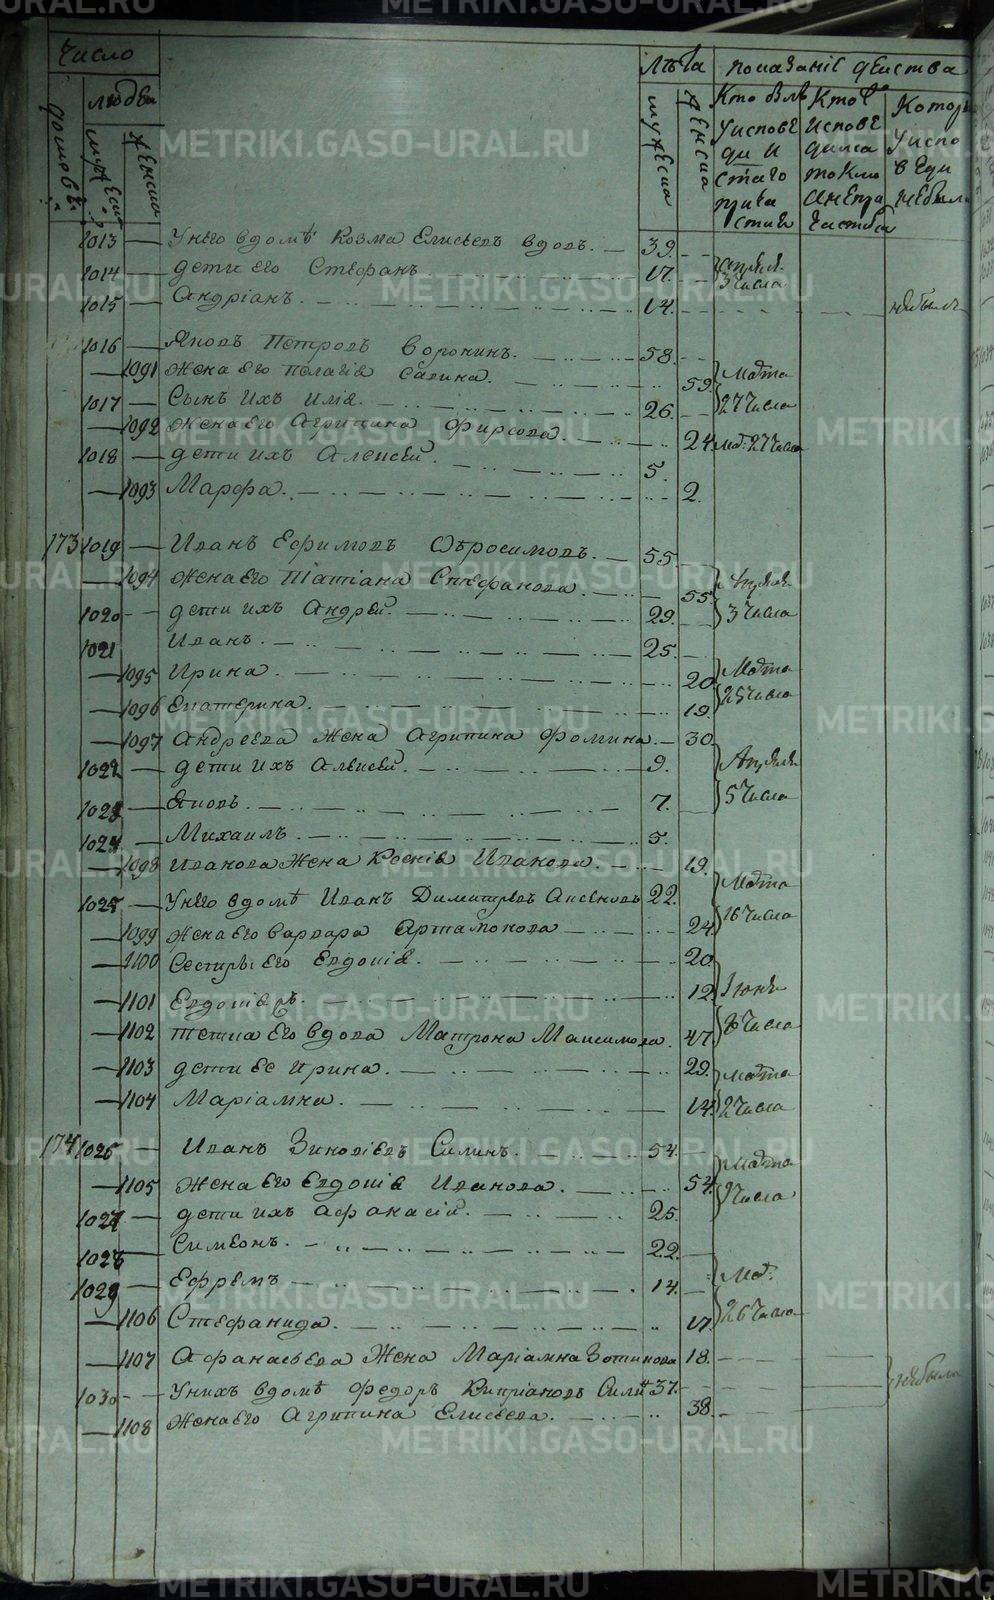 Число
людей
Лѣта
показанiе дѣйства
домовъ
мужеска
женска
мужеска
женска
Кто былъ у исповеди и с~таго причастия
Кто исповедался токмо а не причастился
Которыя у исповеди не были
1013 — У него в домѣ Козма Елисеевъ вдовъ. 39.
1014 — дети его Стефанъ. 17. Апреля 3 числа
1015 — Андрiанъ. 14. не былъ
1016 — Яковъ Петровъ Воронинъ. 58.
— 1091 Жена его Пелагiя Савина. 59. Марта
1017 — Сынъ ихъ 26. 27 числа
— 1092 Жена его Агрипина Фирсова. 24. Мар: 27 числа
1018 — дети ихъ Алексей. 5.
— 1093 Марфа. 2.
173 1019 — Иванъ Ефимовъ 55.
— 1094 Жена его Татiана Стефанова. 55. Апреля
1020 — дети ихъ Андрей. 29. 3 числа
1021 Иванъ. 25.
— 1095 Ирина. 20. Марта
— 1096 Екатерина. 19. 25 числа
— 1097 Андреева жена Агрипина Фомина. 30.
1022 — дети ихъ Алексей. 9. Апреля
1023 — Яковъ. 7. 5 числа
1024 — Михаилъ. 5.
— 1098 Иванова жена Ксенiя Иванова. 19.
1025 — У него в домѣ Иванъ Димитревъ Аксеновъ 22. Марта
— 1099 жена его Варвара Артамонова 24. 16 числа
— 1100 Сестры его Евдокiя. 20.
— 1101 Евдокiя 12. Iюня
— 1102 тетка его вдова Матрона Максимова. 47. числа
— 1103 дети ее Ирина. 29. Марта
— 1104 Марiамна. 14. 2 числа
174 1026 — Иванъ Зиновiевъ Силинъ. 54.
— 1105 Жена его Евдокiя Иванова. 54. Марта
1027 — дети ихъ Афанасiй. 25. числа
1028 Симеонъ. 22.
1029 — Ефремъ 14. Мар:
— 1106 Стефанида. 17. 26 числа
— 1107 Афанасьева Жена Марiамна Зотикова 18.
1030 — У нихъ в домѣ Федоръ Киприановъ 37. не были
— 1108 Жена его Агрипина Елисеева. 38.
METRIKI.GASO-URAL.RU